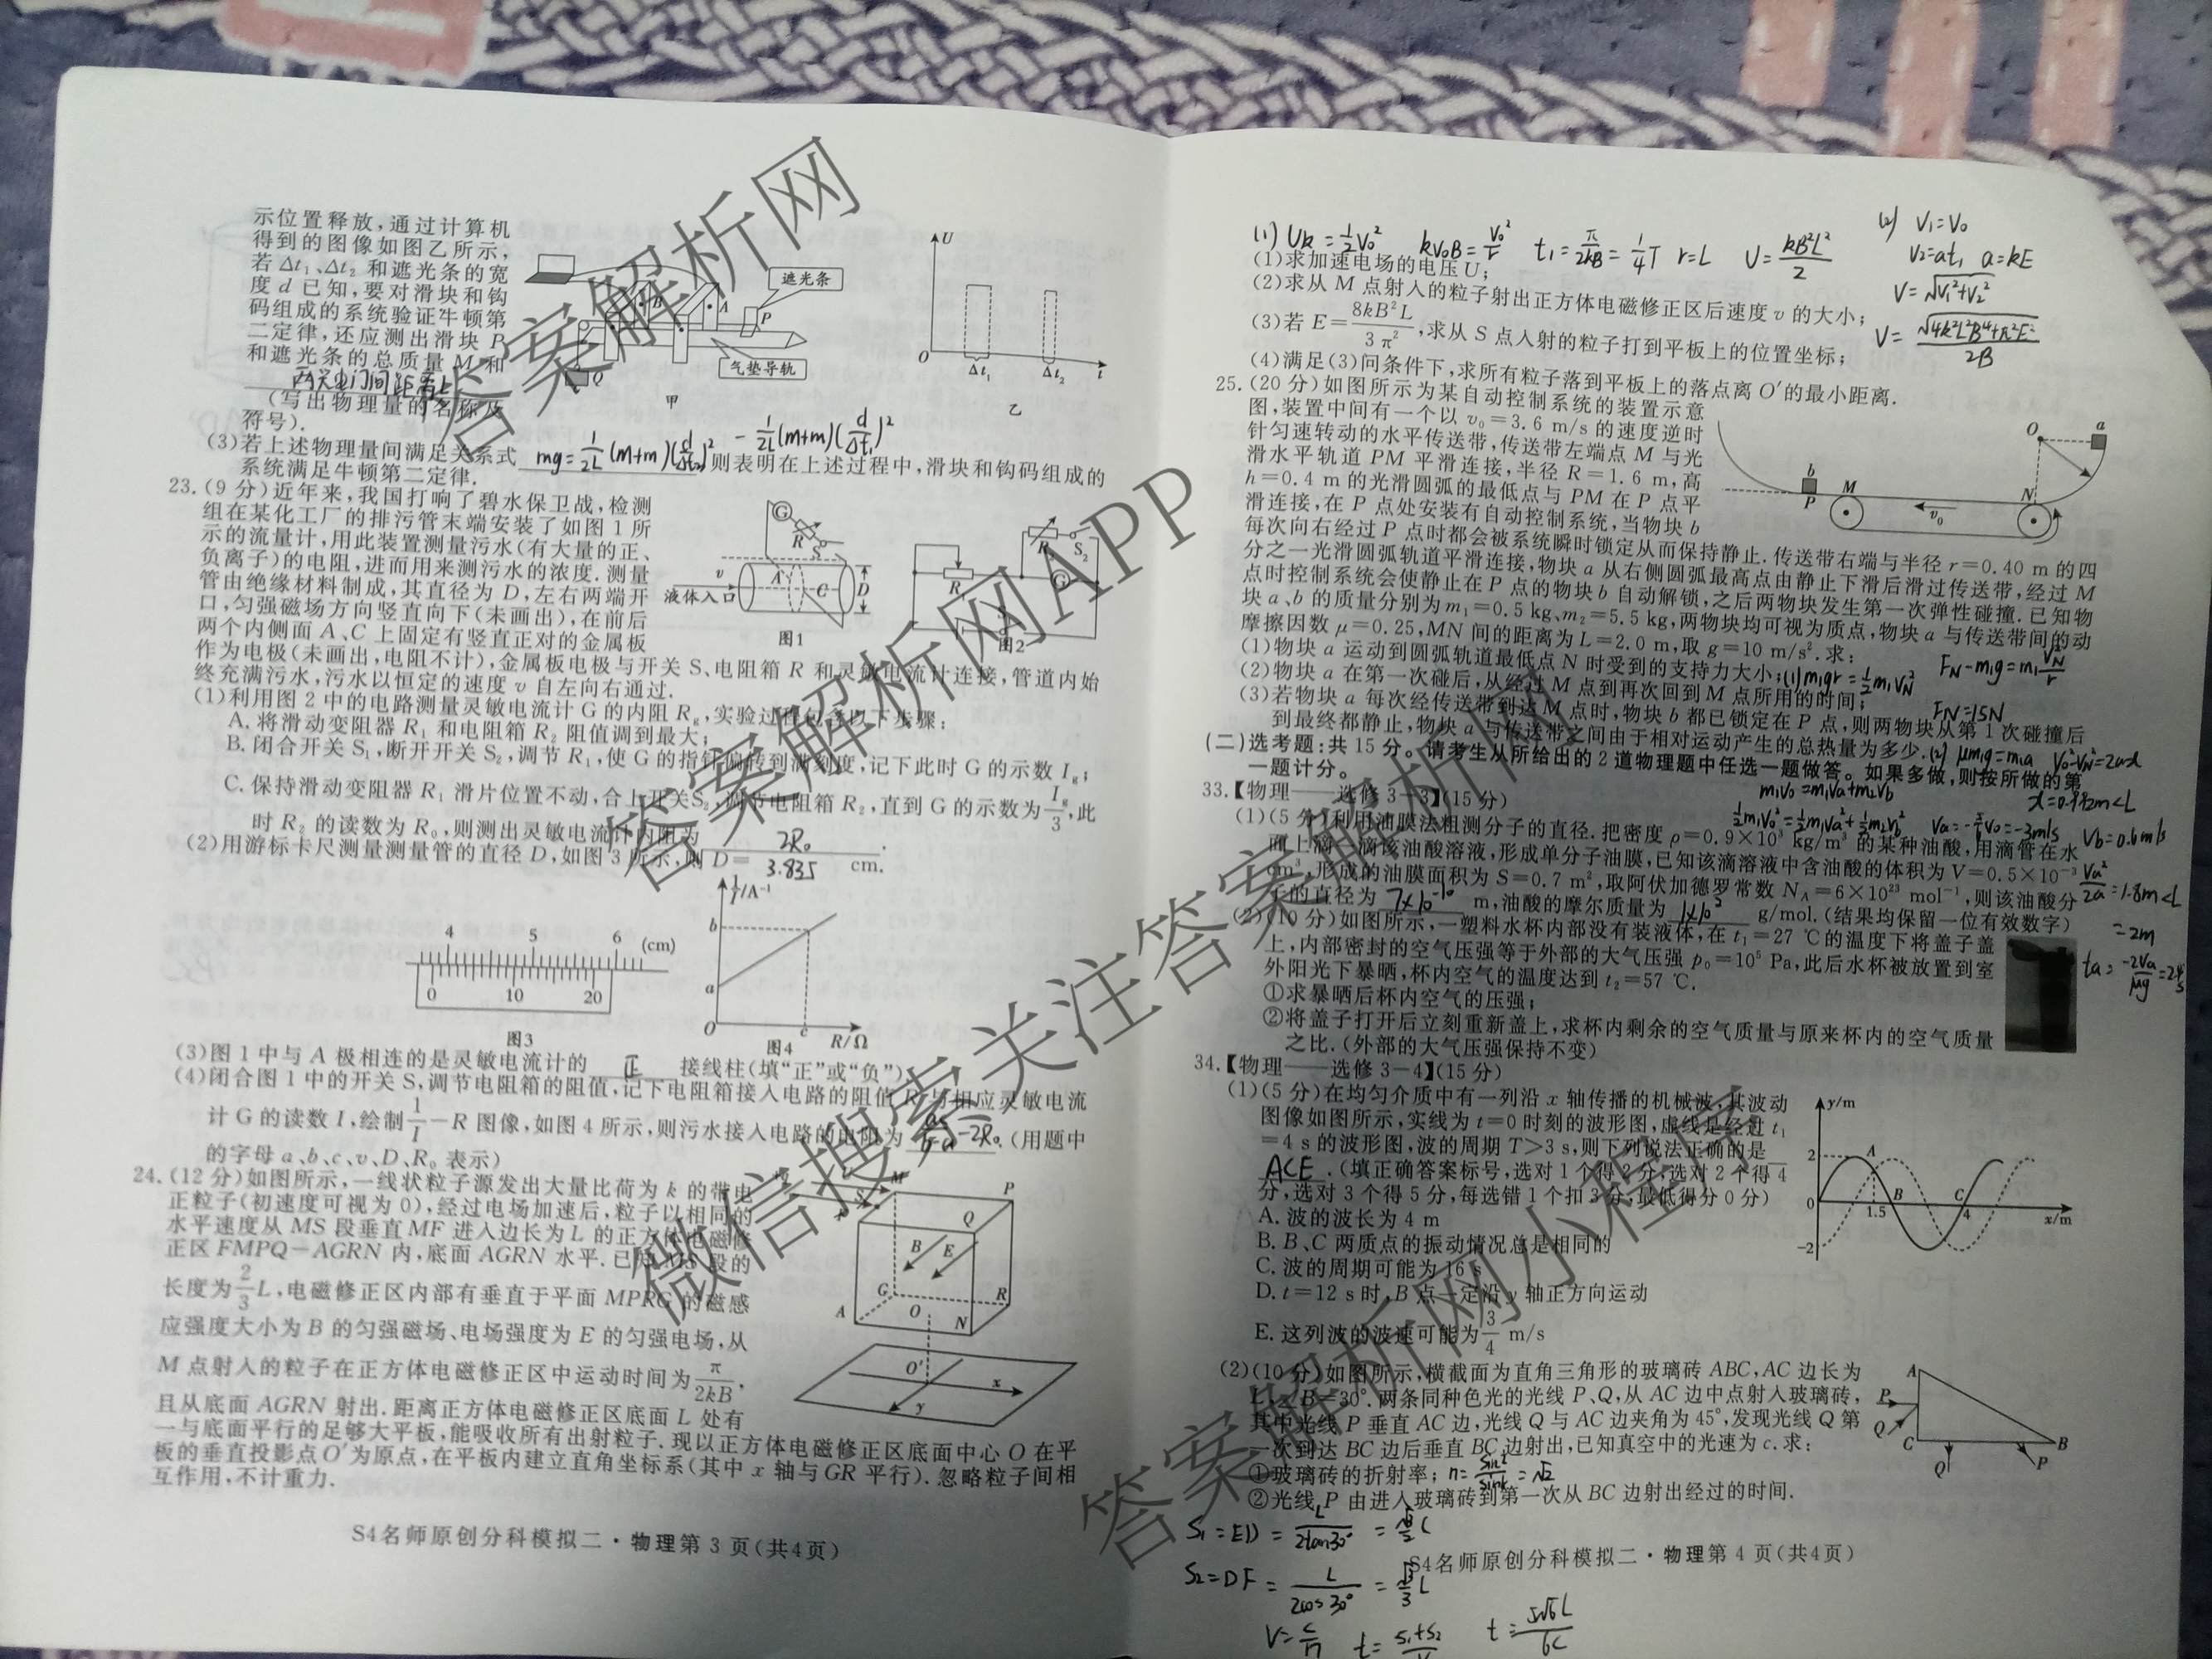 示位置释放,通过计算机
得到的图像如图乙所示,
若 Δt₁、Δt₂ 和遮光条的宽
度 d 已知,要对滑块和钩
码组成的系统验证牛顿第
二定律,还应测出滑块 P
和遮光条的总质量 M 和
两光电门间距离L
(写出物理量的名称及
符号).
遮光条
气垫导轨
A
B
P
Q
甲
U
O
Δt₁
Δt₂
t
乙
(3)若上述物理量间满足关系式 mg=1/2L(M+m)(d/Δt₂)² - 1/2L(M+m)(d/Δt₁)² 则表明在上述过程中,滑块和钩码组成的
系统满足牛顿第二定律.
23.(9 分)近年来,我国打响了碧水保卫战,检测
组在某化工厂的排污管末端安装了如图 1 所
示的流量计,用此装置测量污水(有大量的正、
负离子)的电阻,进而用来测污水的浓度.测量
管由绝缘材料制成,其直径为 D,左右两端开
口,匀强磁场方向竖直向下(未画出),在前后
两个内侧面 A、C 上固定有竖直正对的金属板
作为电极(未画出,电阻不计),金属板电极与开关 S、电阻箱 R 和灵敏电流计连接,管道内始
终充满污水,污水以恒定的速度 v 自左向右通过.
液体入口
图1
图2
(1)利用图 2 中的电路测量灵敏电流计 G 的内阻 Rg,实验过程包含以下步骤:
A.将滑动变阻器 R₁ 和电阻箱 R₂ 阻值调到最大;
B.闭合开关 S₁,断开开关 S₂,调节 R₁,使 G 的指针偏转到满刻度,记下此时 G 的示数 Ig;
C.保持滑动变阻器 R₁ 滑片位置不动,合上开关S₂,调节电阻箱 R₂,直到 G 的示数为 Ig/3,此
时 R₂ 的读数为 R₀,则测出灵敏电流计内阻为 2R₀.
(2)用游标卡尺测量测量管的直径 D,如图 3 所示,则 D= 3.835 cm.
4 5 6 (cm)
0 10 20
图3
1/I/A⁻¹
b
a
O
c
R/Ω
图4
(3)图 1 中与 A 极相连的是灵敏电流计的 正 接线柱(填“正”或“负”)
(4)闭合图 1 中的开关 S,调节电阻箱的阻值,记下电阻箱接入电路的阻值 R 与相应灵敏电流
计 G 的读数 I,绘制 1/I—R 图像,如图 4 所示,则污水接入电路的电阻为 ac/b-a -2R₀.(用题中
的字母 a、b、c、v、D、R₀ 表示)
24.(12 分)如图所示,一线状粒子源发出大量比荷为 k 的带电
正粒子(初速度可视为 0),经过电场加速后,粒子以相同的
水平速度从 MS 段垂直 MF 进入边长为 L 的正方体电磁修
正区 FMPQ-AGRN 内,底面 AGRN 水平.已知 MS 段的
长度为 2/3 L,电磁修正区内部有垂直于平面 MPRG 的磁感
应强度大小为 B 的匀强磁场、电场强度为 E 的匀强电场,从
M 点射入的粒子在正方体电磁修正区中运动时间为 π/2kB,
且从底面 AGRN 射出.距离正方体电磁修正区底面 L 处有
一与底面平行的足够大平板,能吸收所有出射粒子.现以正方体电磁修正区底面中心 O 在平
板的垂直投影点 O′为原点,在平板内建立直角坐标系(其中 x 轴与GR 平行).忽略粒子间相
互作用,不计重力.
S4名师原创分科模拟二·物理第 3 页(共4页)
(1) Uk=1/2v₀² kv₀B=v₀²/r t₁=π/2kB=1/4T r=L U=kB²L²/2
(2) v₁=v₀
v₂=at₁ a=kE
v=√v₁²+v₂²
v=√4k²L²B⁴+π²E²/2B
(1)求加速电场的电压 U;
(2)求从 M 点射入的粒子射出正方体电磁修正区后速度 v 的大小;
(3)若 E=8kB²L/3π²,求从 S 点入射的粒子打到平板上的位置坐标;
(4)满足(3)问条件下,求所有粒子落到平板上的落点离 O′的最小距离.
25.(20 分)如图所示为某自动控制系统的装置示意
图,装置中间有一个以 v₀=3.6 m/s 的速度逆时
针匀速转动的水平传送带,传送带左端点 M 与光
滑水平轨道 PM 平滑连接,半径 R=1.6 m,高
h=0.4 m 的光滑圆弧的最低点与 PM 在 P 点平
滑连接,在 P 点处安装有自动控制系统,当物块 b
每次向右经过 P 点时都会被系统瞬时锁定从而保持静止.传送带右端与半径 r=0.40 m 的四
分之一光滑圆弧轨道平滑连接,物块 a 从右侧圆弧最高点由静止下滑后滑过传送带,经过 M
点时控制系统会使静止在 P 点的物块 b 自动解锁,之后两物块发生第一次弹性碰撞.已知物
块 a、b 的质量分别为m₁=0.5 kg、m₂=5.5 kg,两物块均可视为质点,物块 a 与传送带间的动
摩擦因数 μ=0.25,MN 间的距离为 L=2.0 m,取 g=10 m/s².求:
(1)物块 a 运动到圆弧轨道最低点 N 时受到的支持力大小; (1) m₁gr=1/2m₁vN² FN-m₁g=m₁vN²/r
(2)物块 a 在第一次碰后,从经过 M 点到再次回到 M 点所用的时间; FN=15N
(3)若物块 a 每次经传送带到达 M 点时,物块 b 都已锁定在 P 点,则两物块从第 1 次碰撞后
到最终都静止,物块 a 与传送带之间由于相对运动产生的总热量为多少. (2) μm₁g=m₁a v₀²-vN²=2ax
(二)选考题:共 15 分。请考生从所给出的 2 道物理题中任选一题做答。如果多做,则按所做的第
一题计分。
m₁v₀=m₁va+m₂vb
x=0.992m<L
33.【物理——选修 3-3】(15 分)
1/2m₁v₀²=1/2m₁va²+1/2m₂vb² va=-5/6v₀=-3m/s vb=0.6m/s
(1)(5 分)利用油膜法粗测分子的直径.把密度 ρ=0.9×10³ kg/m³ 的某种油酸,用滴管在水
面上滴一滴该油酸溶液,形成单分子油膜,已知该滴溶液中含油酸的体积为 V=0.5×10⁻³
cm³,形成的油膜面积为 S=0.7 m²,取阿伏加德罗常数 NA=6×10²³ mol⁻¹,则该油酸分
子的直径为 7×10⁻¹⁰ m,油酸的摩尔质量为 g/mol.(结果均保留一位有效数字)
va²/2a=1.8m<L
=2m
(2)(10 分)如图所示,一塑料水杯内部没有装液体,在 t₁=27 ℃的温度下将盖子盖
上,内部密封的空气压强等于外部的大气压强 p₀=10⁵ Pa,此后水杯被放置到室
外阳光下暴晒,杯内空气的温度达到 t₂=57 ℃.
①求暴晒后杯内空气的压强;
②将盖子打开后立刻重新盖上,求杯内剩余的空气质量与原来杯内的空气质量
之比.(外部的大气压强保持不变)
ta=-2va/μg=2.4s
34.【物理——选修 3-4】(15 分)
(1)(5 分)在均匀介质中有一列沿 x 轴传播的机械波,其波动
图像如图所示,实线为 t=0 时刻的波形图,虚线是经过 t₁
=4 s 的波形图,波的周期 T>3 s,则下列说法正确的是
ACE .(填正确答案标号,选对 1 个得 2 分,选对 2 个得 4
分,选对 3 个得 5 分,每选错 1 个扣 3 分,最低得分 0 分)
A.波的波长为 4 m
B.B、C 两质点的振动情况总是相同的
C.波的周期可能为 16 s
D.t=12 s 时,B 点一定沿 y 轴正方向运动
E.这列波的波速可能为 3/4 m/s
y/m
2
0
-2
A
B
C
1.5
4
x/m
(2)(10 分)如图所示,横截面为直角三角形的玻璃砖 ABC,AC 边长为
L,∠B=30°.两条同种色光的光线 P、Q,从 AC 边中点射入玻璃砖,
其中光线 P 垂直 AC 边,光线 Q 与 AC 边夹角为 45°,发现光线 Q 第
一次到达 BC 边后垂直 BC 边射出,已知真空中的光速为 c.求:
①玻璃砖的折射率; n=sin i/sin r=√2
②光线 P 由进入玻璃砖到第一次从 BC 边射出经过的时间.
S₁=ED=L/2tan30°=√3/2 L
S4名师原创分科模拟二·物理第 4 页(共4页)
S₂=DF=L/2cos30°=√3/3 L
v=c/n t=S₁+S₂/v t=5√6L/6c
答案解析网
微信搜索关注答案解析网APP
答案解析网
答案解析网小程序